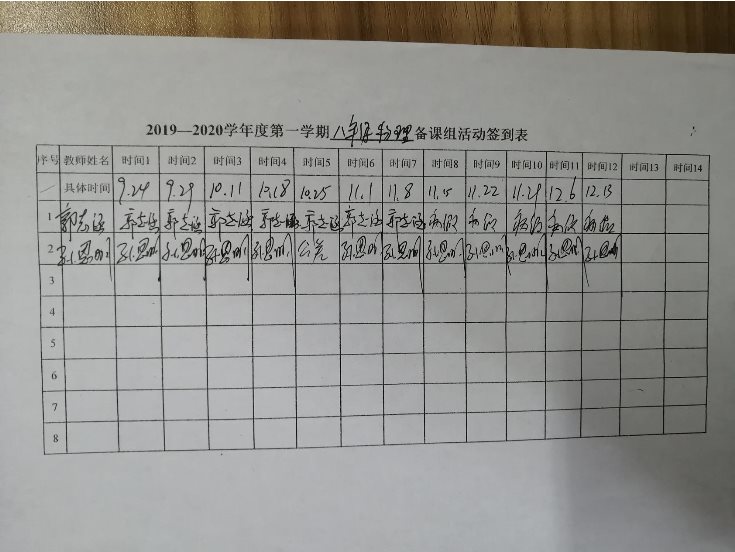 2019—2020学年度第一学期八年级物理备课组活动签到表
序号 教师姓名 时间1 时间2 时间3 时间4 时间5 时间6 时间7 时间8 时间9 时间10 时间11 时间12 时间13 时间14
/ 具体时间 9.24 9.29 10.11 10.18 10.25 11.1 11.8 11.15 11.22 11.29 12.6 12.13
1 郭志 郭志 郭志 郭志 郭志 郭志 郭志 郭志 病假 病假 病假 病假 病假
2 孙思明 孙思明 孙思明 孙思明 孙思明 公差 孙思明 孙思明 孙思明 孙思明 孙思明 孙思明 孙思明
3
4
5
6
7
8